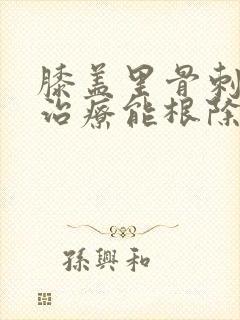 膝盖里骨刺
治療能根除
孫興和